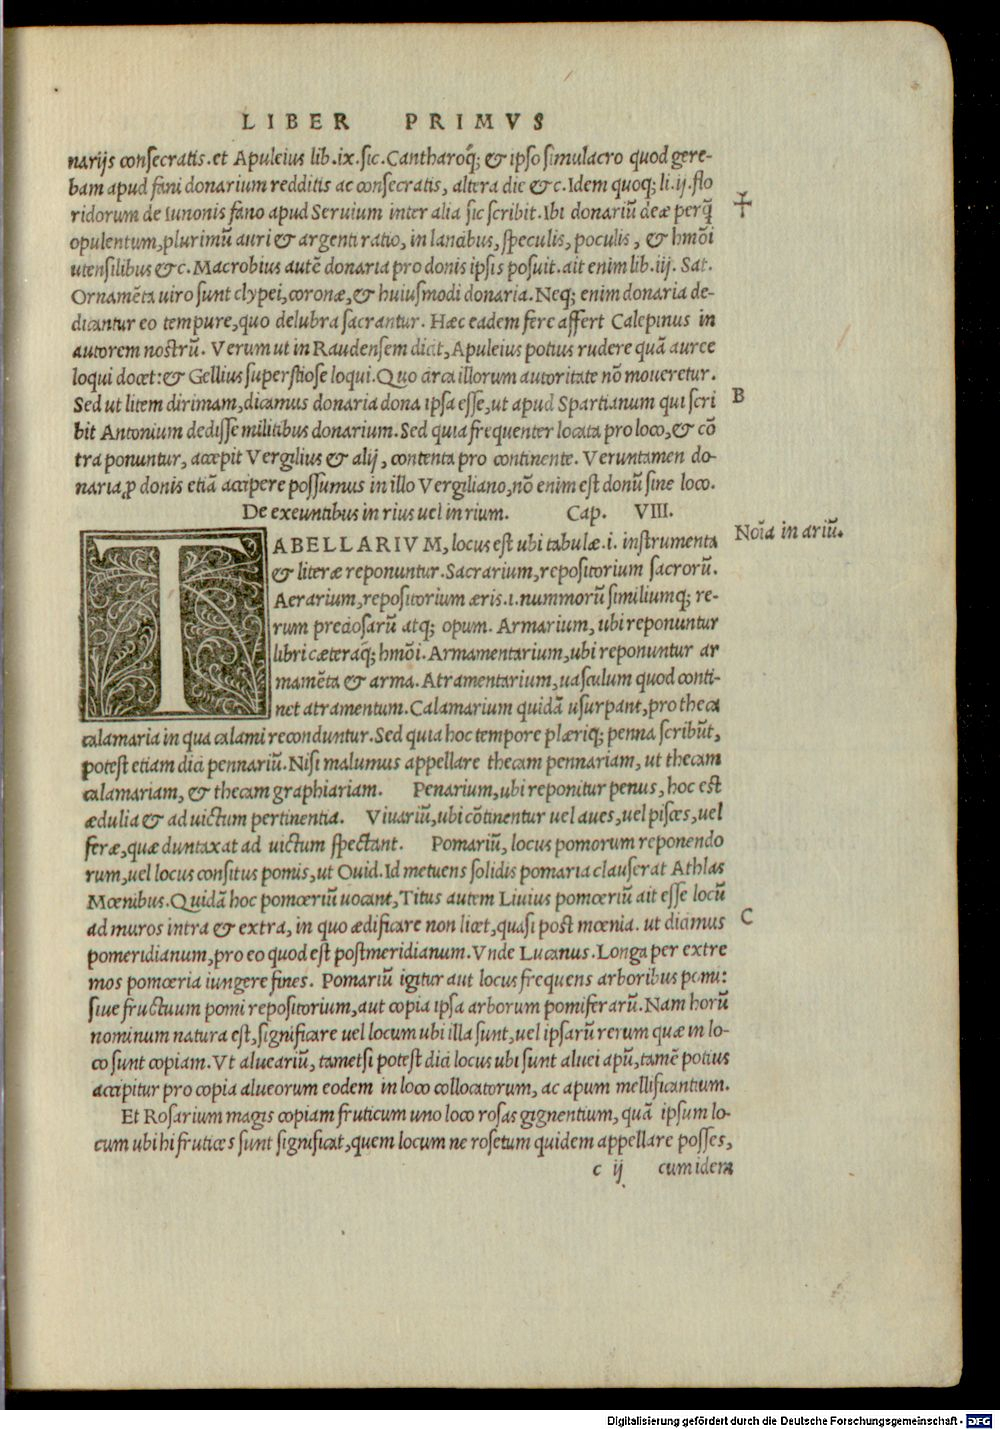 LIBER PRIMVS
narijs consecratis.et Apuleius lib.ix.sic.Cantharoq̃; & ipso simulacro quod gere-
bam apud fani donarium redditis ac consecratis, altera die &c.Idem quoq; li.ij.flo
ridorum de Iunonis fano apud Seruium inter alia sic scribit.Ibi donariũ deæ perq̃
opulentum,plurimũ auri & argenti ratio, in lancibus, speculis, poculis, & hmõi
utensilibus &c.Macrobius autẽ donaria pro donis ipsis posuit.ait enim lib.iij. Sat.
Ornamẽta uiro sunt clypei,coronæ,& huiusmodi donaria. Neq; enim donaria de-
dicantur eo tempure,quo delubra sacrantur. Hæc eadem fere affert Calepinus in
autorem nostrũ. Verum ut in Raudensem dicit,Apuleius potius rudere quã auree
loqui docet:& Gellius superstiose loqui.Quo circa illorum autoritate nõ moueretur.
Sed ut litem dirimam,dicamus donaria dona ipsa esse,ut apud Spartianum qui scri
B
bit Antonium dedisse militibus donarium.Sed quia frequenter locata pro loco,& cõ
tra ponuntur, accepit Vergilius & alij, contenta pro continente. Veruntamen do-
naria ꝓ donis etiã accipere possumus in illo Vergiliano,nõ enim est donũ sine loco.
De exeuntibus in rius uel in rium. Cap. VIII.
Noĩa in ariũ.
TABELLARIVM, locus est ubi tabulæ.i. instrumenta
& literæ reponuntur. Sacrarium,repositorium sacrorũ.
Aerarium,repositorium æris.i.nummorũ similiumq; re-
rum preciosarũ atq; opum. Armarium, ubi reponuntur
libri cæteraq̃; hmõi. Armamentarium,ubi reponuntur ar
mamẽta & arma. Atramentarium,uasculum quod conti-
net atramentum. Calamarium quidã usurpant,pro theca
calamaria in qua calami reconduntur.Sed quia hoc tempore plæriq; penna scribũt,
potest etiam dici pennariũ.Nisi malumus appellare thecam pennariam, ut thecam
calamariam, & thecam graphiariam. Penarium,ubi reponitur penus, hoc est
ædulia & ad uictum pertinentia. Viuariũ,ubi cõtinentur uel aues,uel pisces,uel
feræ,quæ duntaxat ad uictum spectant. Pomariũ, locus pomorum reponendo
rum,uel locus consitus pomis,ut Ouid.Id metuens solidis pomaria clauserat Athlas
Mœnibus.Quidã hoc pomœriũ uocant,Titus autem Liuius pomœriũ ait esse locũ
ad muros intra & extra, in quo ædificare non licet,quasi post mœnia. ut dicimus
C
pomeridianum,pro eo quod est postmeridianum. Vnde Lucanus. Longa per extre
mos pomœria iungere fines. Pomariũ igitur aut locus frequens arboribus pomi:
siue fructuum pomi repositorium,aut copia ipsa arborum pomiferarũ.Nam horũ
nominum natura est,significare uel locum ubi illa sunt,uel ipsarũ rerum quæ in lo-
co sunt copiam.Vt alueariũ, tametsi potest dici locus ubi sunt aluei apũ,tamẽ potius
accipitur pro copia alueorum eodem in loco collocatorum, ac apum mellificantium.
Et Rosarium magis copiam fruticum uno loco rosas gignentium, quã ipsum lo-
cum ubi hi frutices sunt significat,quem locum ne rosetum quidem appellare posses,
c ij cum idem
Digitalisierung gefördert durch die Deutsche Forschungsgemeinschaft - DFG